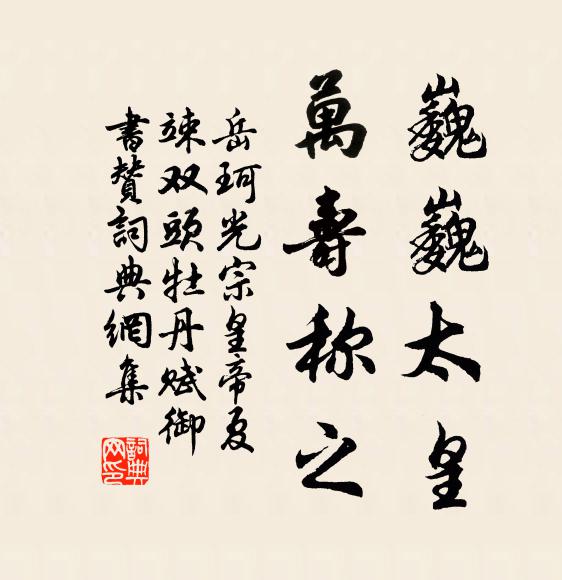 巍巍太皇
萬壽称之
岳珂光宗皇帝夏
竦双頭牡丹赋御
書贊詞典網集
詞典网印